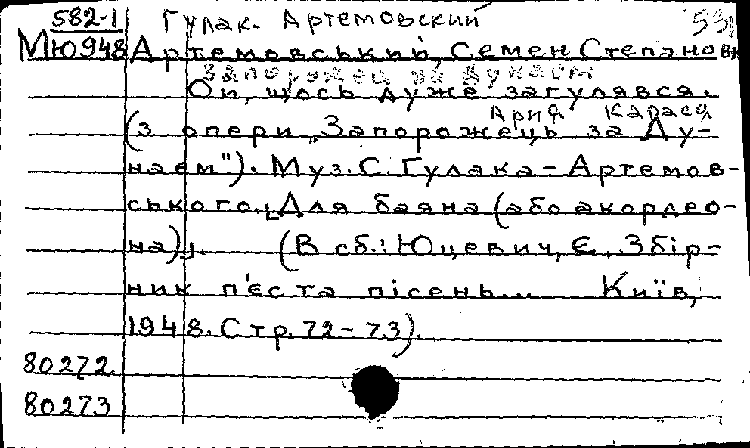 582-1 Гулак. Артемовский
Мю948 Артемовський, Семен Степанович
Запорожец за Дунаем
Ой, щось дуже загулявся.
Ария Карася
(з опери „Запорожець за Ду-
наєм"). Муз. С. Гулака-Артемов-
ського. [Для баяна (або акордео-
на)]. (В сб.: Юцевич, Є. Збір-
ник п'єс та пісень... Київ,
1948. Стр. 72-73).
80272
80273